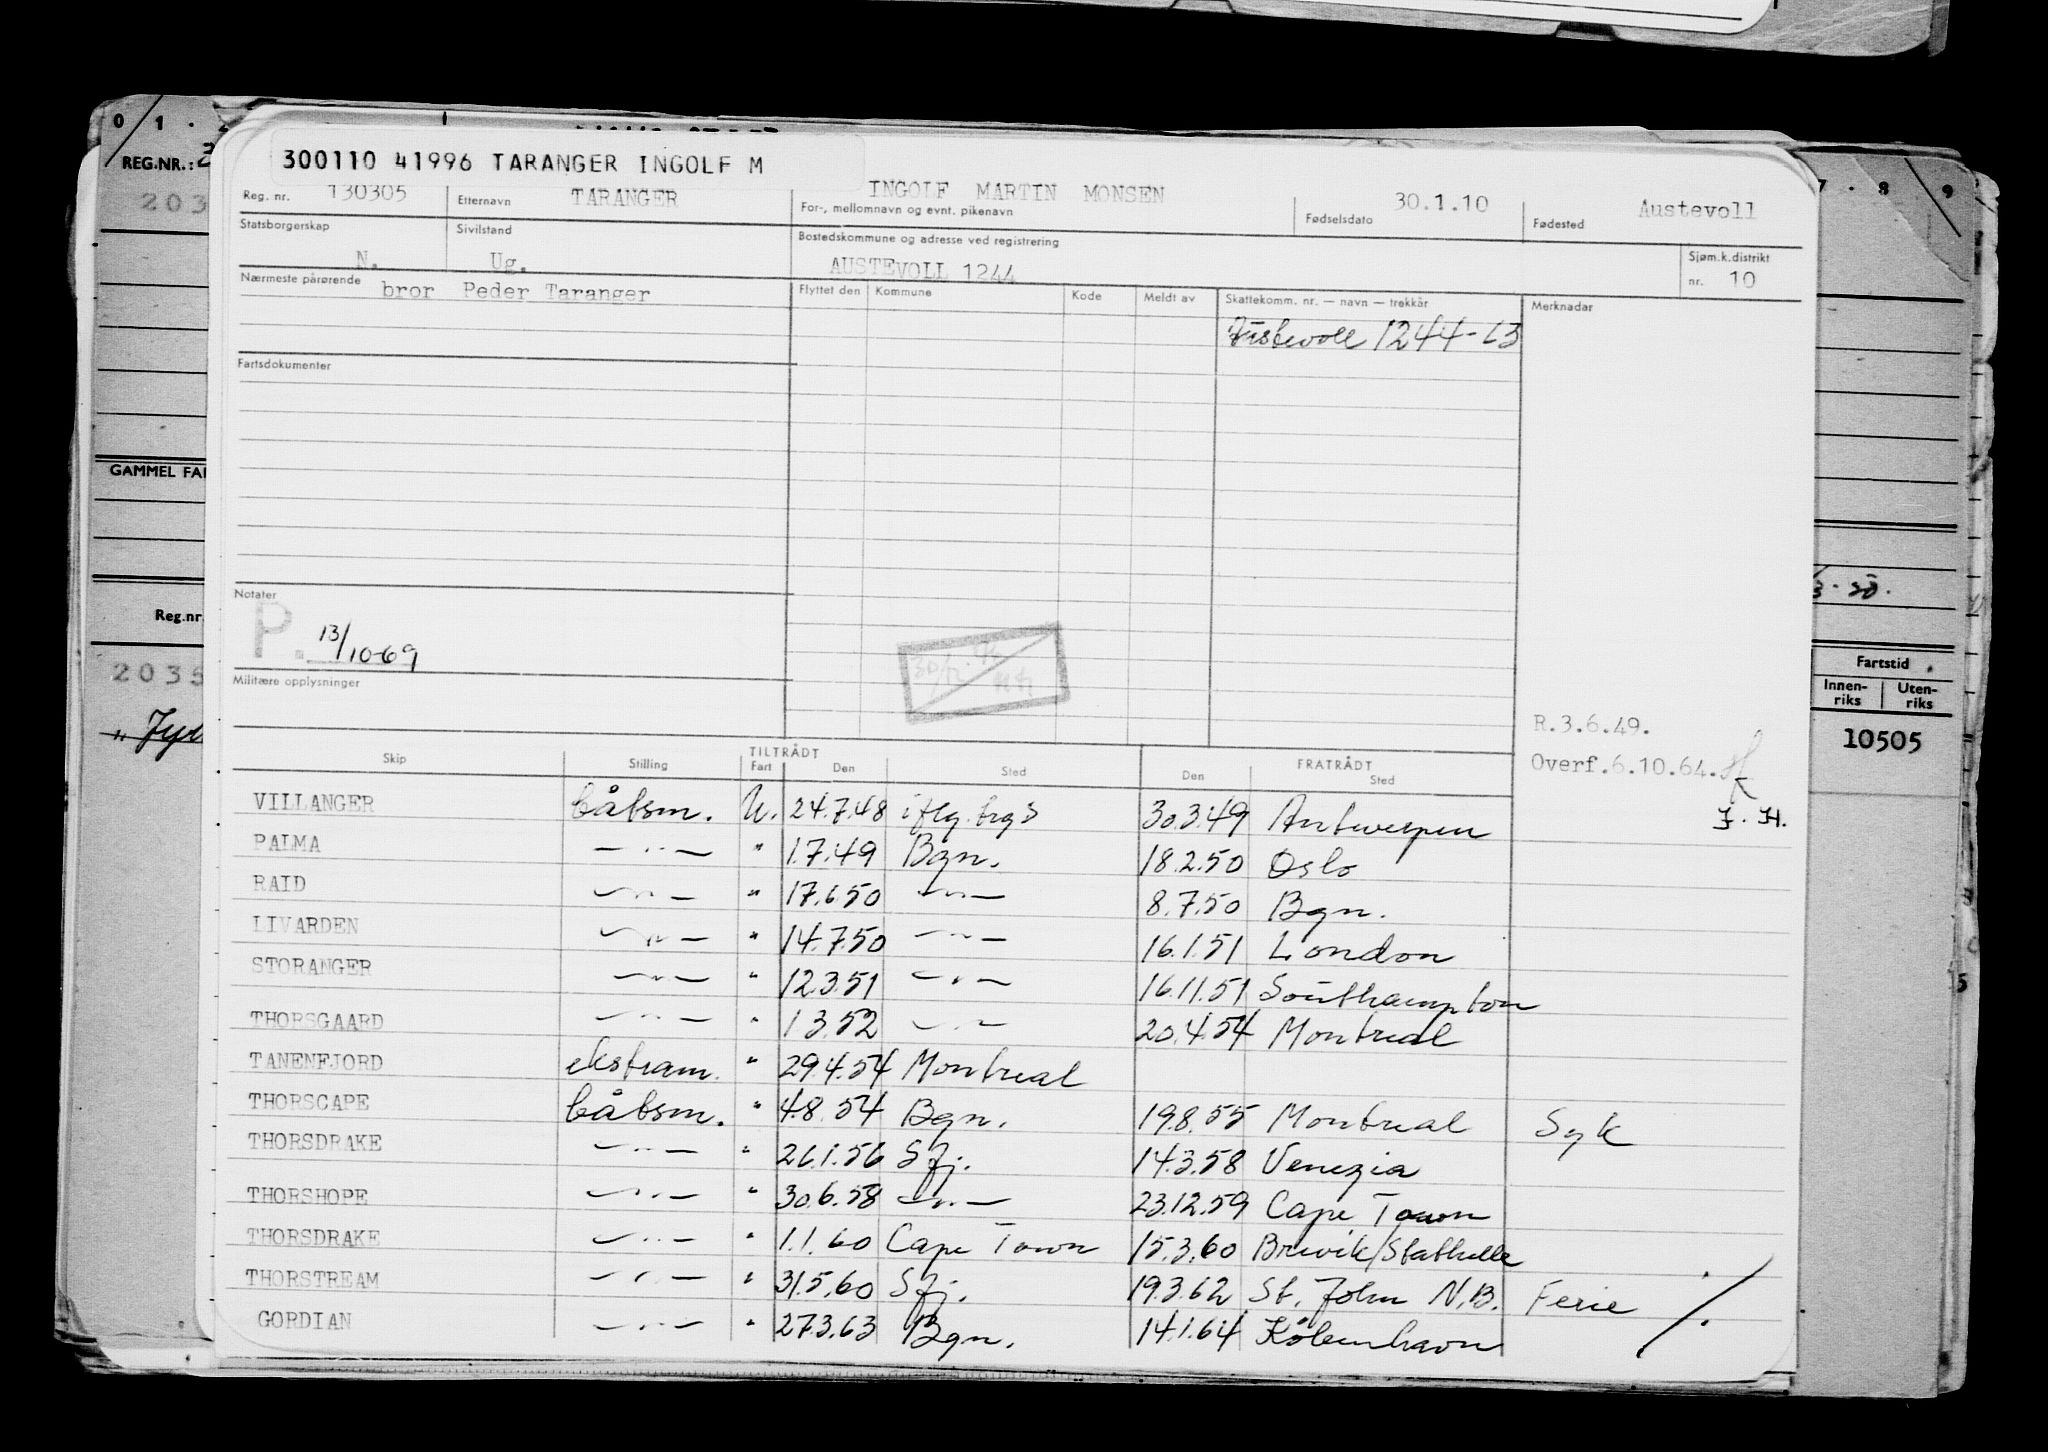 0 1 .
REG.NR.: 2
203
GAMMEL FA
Reg.nr
2035
7 · 8 9
Fartstid
Innen-riks Uten-riks
10505
300110 41996 TARANGER INGOLF M
Reg. nr. 130305 Etternavn TARANGER For-, mellomnavn og evnt. pikenavn INGOLF MARTIN MONSEN Fødselsdato 30.1.10 Fødested Austevoll
Statsborgerskap N. Sivilstand Ug. Bostedskommune og adresse ved registrering AUSTEVOLL 1244 Sjøm.k.distrikt nr. 10
Nærmeste pårørende bror Peder Taranger Flyttet den Kommune Kode Meldt av Skattekomm. nr. — navn — trekkår Merknadar
Austevoll 1244-63
Fartsdokumenter
Notater
P. 13/10-69
Militære opplysninger
R.3.6.49.
Overf.6.10.64.
J. H.
TILTRÅDT FRATRÅDT
Skip Stilling Fart Den Sted Den Sted
VILLANGER båtsm. U. 24.7.48 iflg. brgs 30.3.49 Antwerpen
PALMA — " — " 1.7.49 Bgn. 18.2.50 Oslo
RAID — " — " 17.6.50 — " — 8.7.50 Bgn.
LIVARDEN — " — " 14.7.50 — " — 16.1.51 London
STORANGER — " — " 12.3.51 — " — 16.11.51 Southampton
THORSGAARD — " — " 1.3.52 — " — 20.4.54 Montreal
TANENFJORD ekstram. " 29.4.54 Montreal
THORSCAPE båtsm. " 4.8.54 Bgn. 19.8.55 Montreal Syk
THORSDRAKE — " — " 26.1.56 Sfj. 14.3.58 Venezia
THORSHOPE — " — " 30.6.58 — " — 23.12.59 Cape Town
THORSDRAKE — " — " 1.1.60 Cape Town 15.3.60 Brevik/Stathelle
THORSTREAM — " — " 31.5.60 Sfj. 19.3.62 St. John N.B. Ferie ./.
GORDIAN — " — " 27.3.63 Bgn. 14.1.64 Köbenhavn